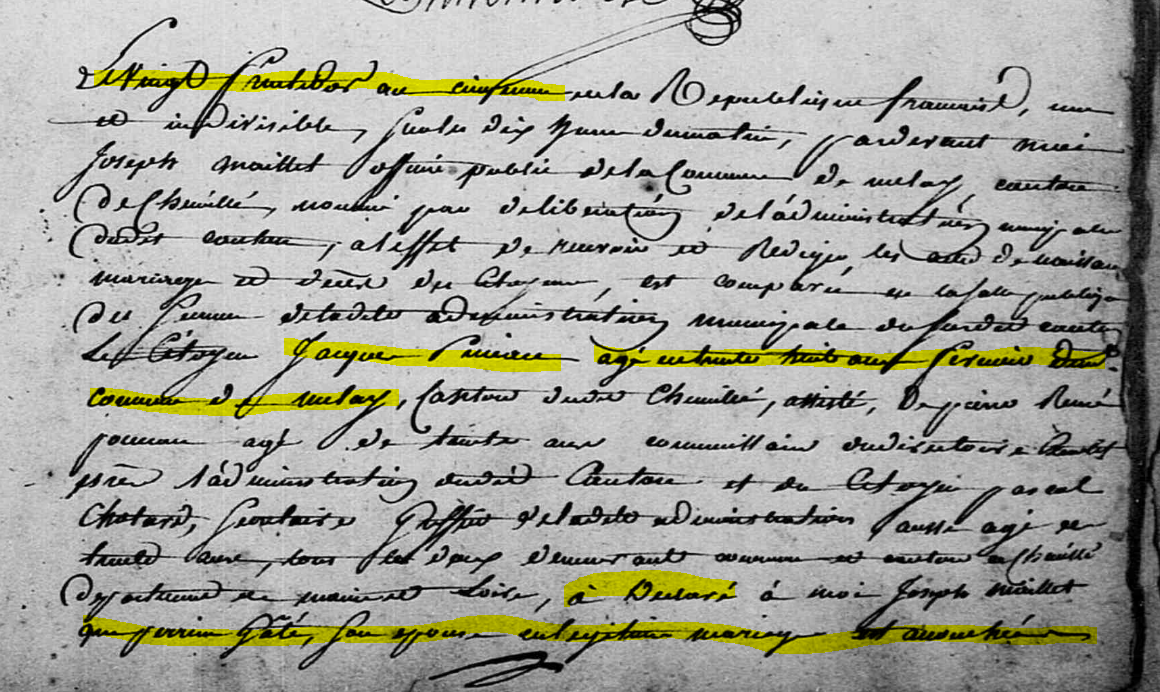 Le Vingt fructidor an cinquieme de la Republique francaise, une
et indivisible, sur les dix heure du matin, pardevant moi
Joseph maillet officier public de la Commune de melay canton
De Chemillé, nommé par deliberation de l'administration municipale
dudit canton, a leffet de recevoir et Rediger les acte de naissance
mariage et décès des Citoyens, est comparu en la salle publique
des seances deladite administration municipale du susdit canton
Le Citoyen Jacque agé de trente huit ans fermier
commune de melay, Canton dudit Chemillé, assisté, De pierre René
agé de trente ans commissaire du directoire Executif
pres l'administration dudit Canton et du Citoyen pascal
Chotard, secretaire Greffier deladite administration aussi agé de
trente ans, tous les deux demeurant commune et canton de Chemillé
Departement de maine et Loire, à Declaré à moi Joseph maillet
que perrine Gâté, son epouse en legitime mariage est accouchée